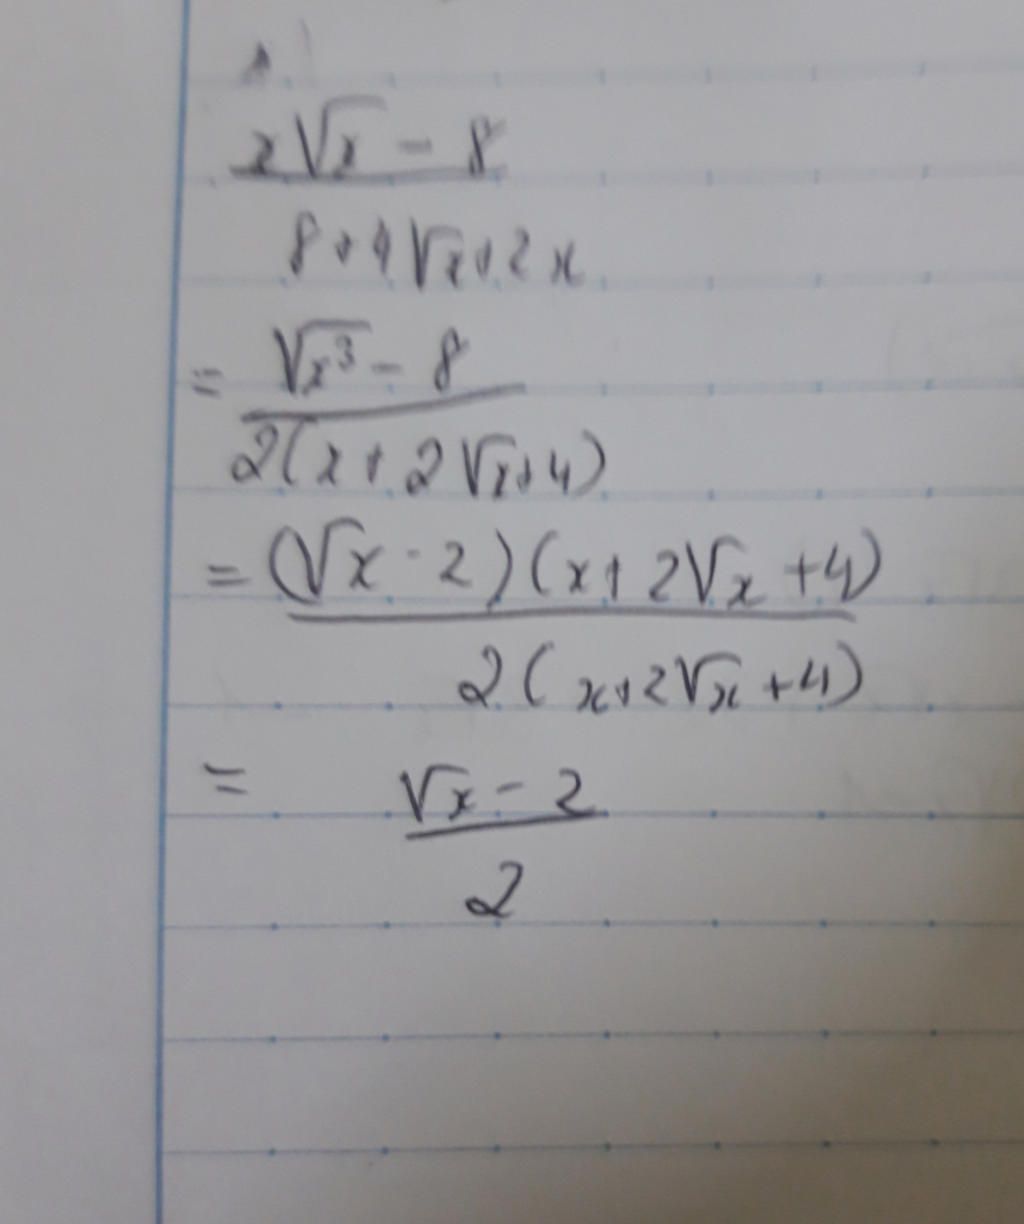 x√x - 8
8+4√x+2x
= √x³ - 8
2(x+2√x+4)
= (√x - 2)(x+2√x+4)
2(x+2√x+4)
= √x - 2
2